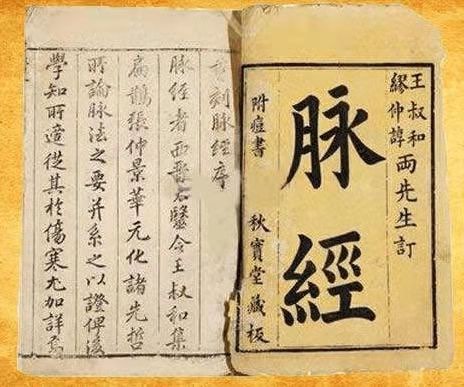 王叔和
繆仲諄
兩先生訂
脉經
附痘書 秋寶堂藏板
刻脉經序
脉經者西晉醫令王叔和集
扁鵲張仲景華元化諸先哲
所論脉法之要并系之以證俾後
學知所適從其於傷寒尤加詳焉